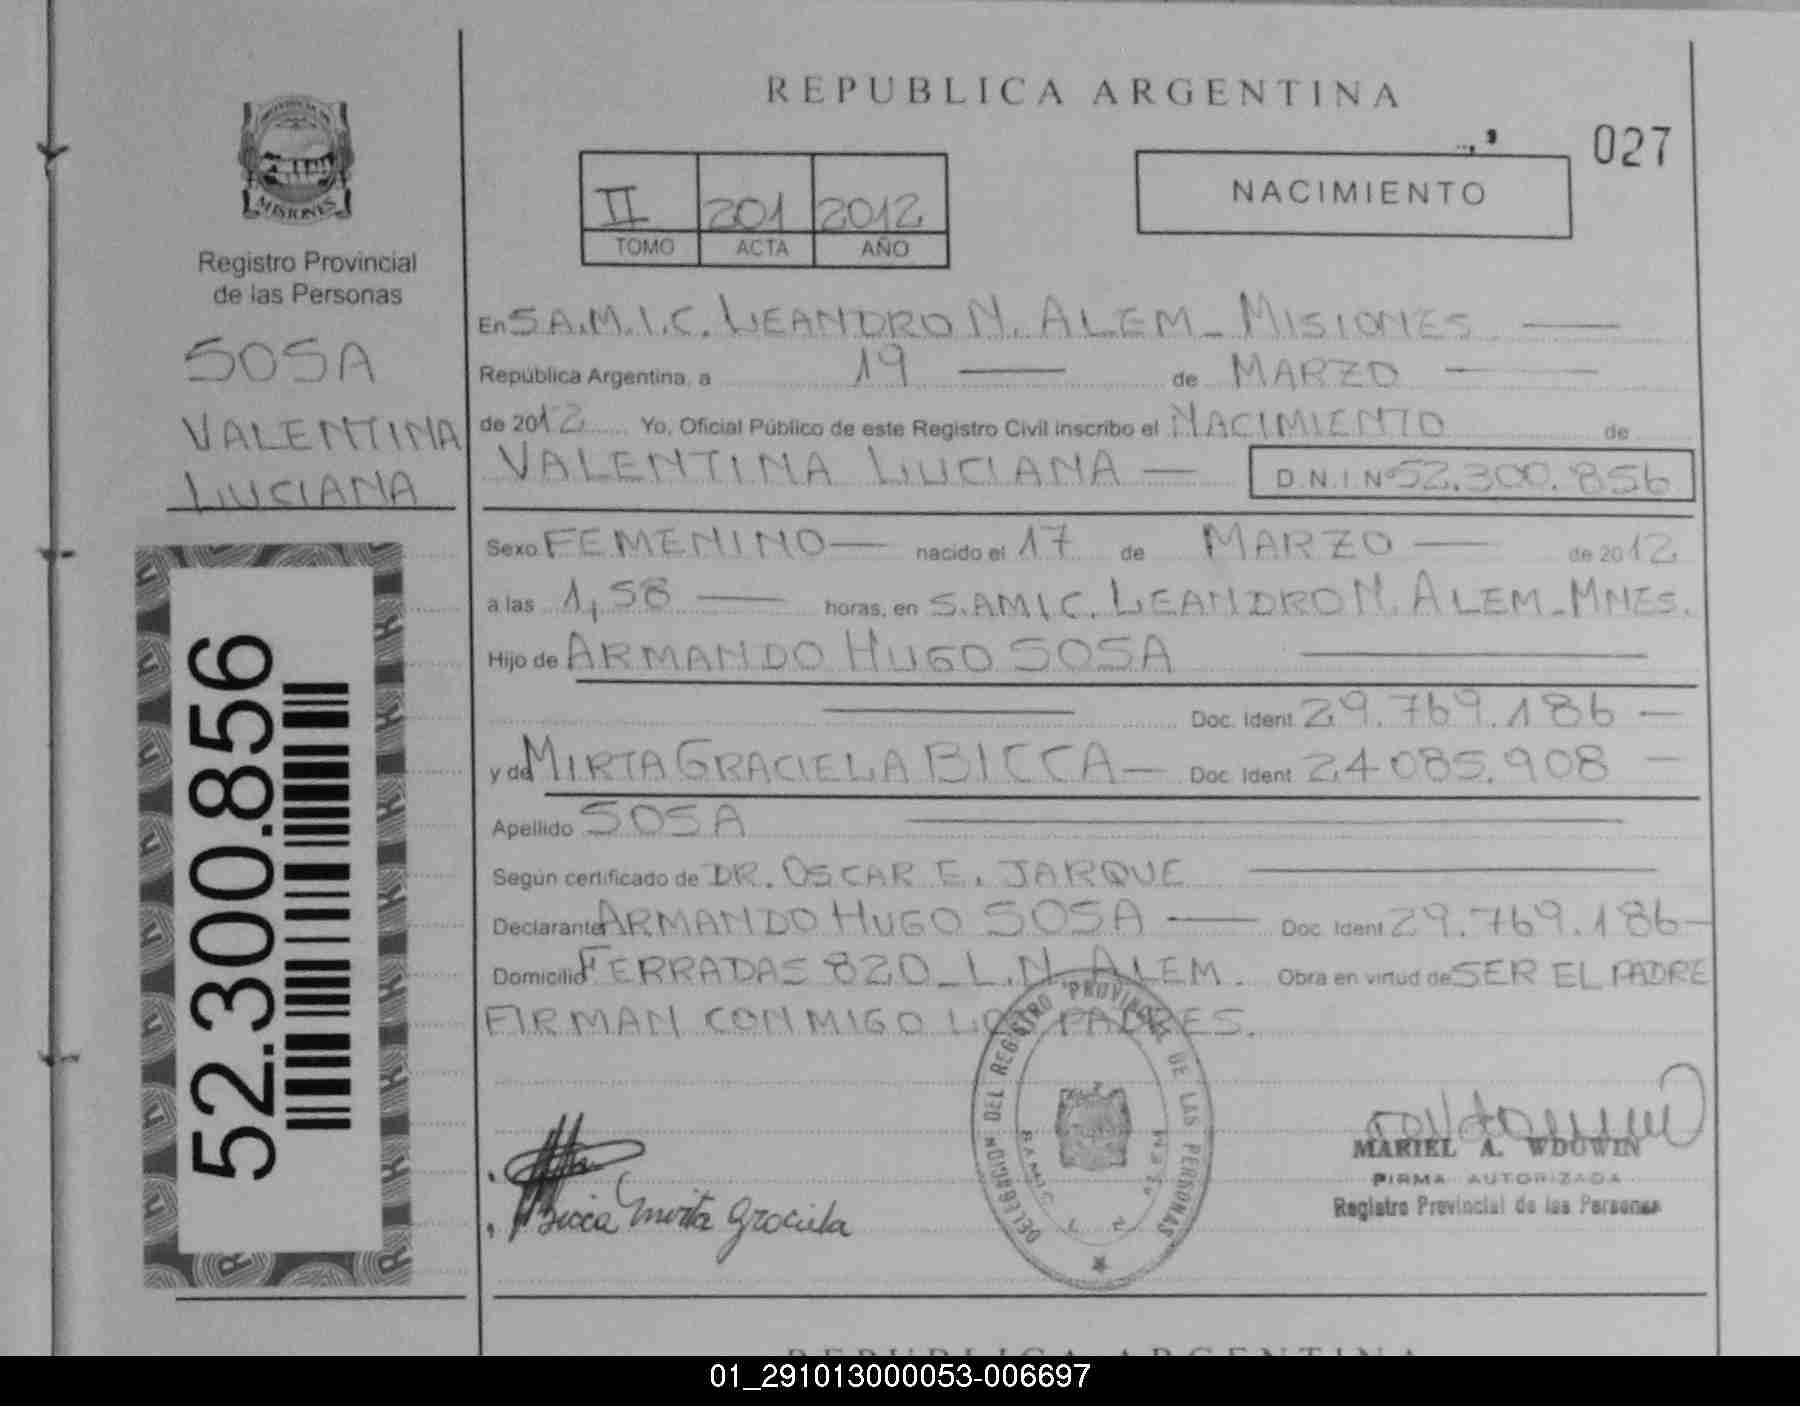 REPUBLICA ARGENTINA
027
NACIMIENTO
II 201 2012
TOMO ACTA AÑO
MISIONES
Registro Provincial
de las Personas
SOSA
VALENTINA
LUCIANA
52.300.856
En S.A.M.I.C. LEANDRO N. ALEM - MISIONES
República Argentina, a 19 de MARZO
de 2012 Yo, Oficial Público de este Registro Civil inscribo el NACIMIENTO de
VALENTINA LUCIANA — D.N.I Nº 52.300.856
Sexo FEMENINO — nacido el 17 de MARZO — de 2012
a las 1,58 — horas, en S.AMIC. LEANDRO N. ALEM - MNES.
Hijo de ARMANDO HUGO SOSA
Doc. Ident 29.769.186 —
y de MIRTA GRACIELA BICCA — Doc. Ident 24.085.908 —
Apellido SOSA
Según certificado de DR. OSCAR E. JARQUE
Declarante ARMANDO HUGO SOSA — Doc. Ident 29.769.186 —
Domicilio FERRADAS 820 - L.N. ALEM. Obra en virtud de SER EL PADRE
FIRMAN CONMIGO LOS PADRES.
DELEGACION DEL REGISTRO PROVINCIAL DE LAS PERSONAS
Bicca Mirta Graciela
MARIEL A. WDOWIN
FIRMA AUTORIZADA
Registro Provincial de las Personas
REPUBLICA ARGENTINA
01_291013000053-006697